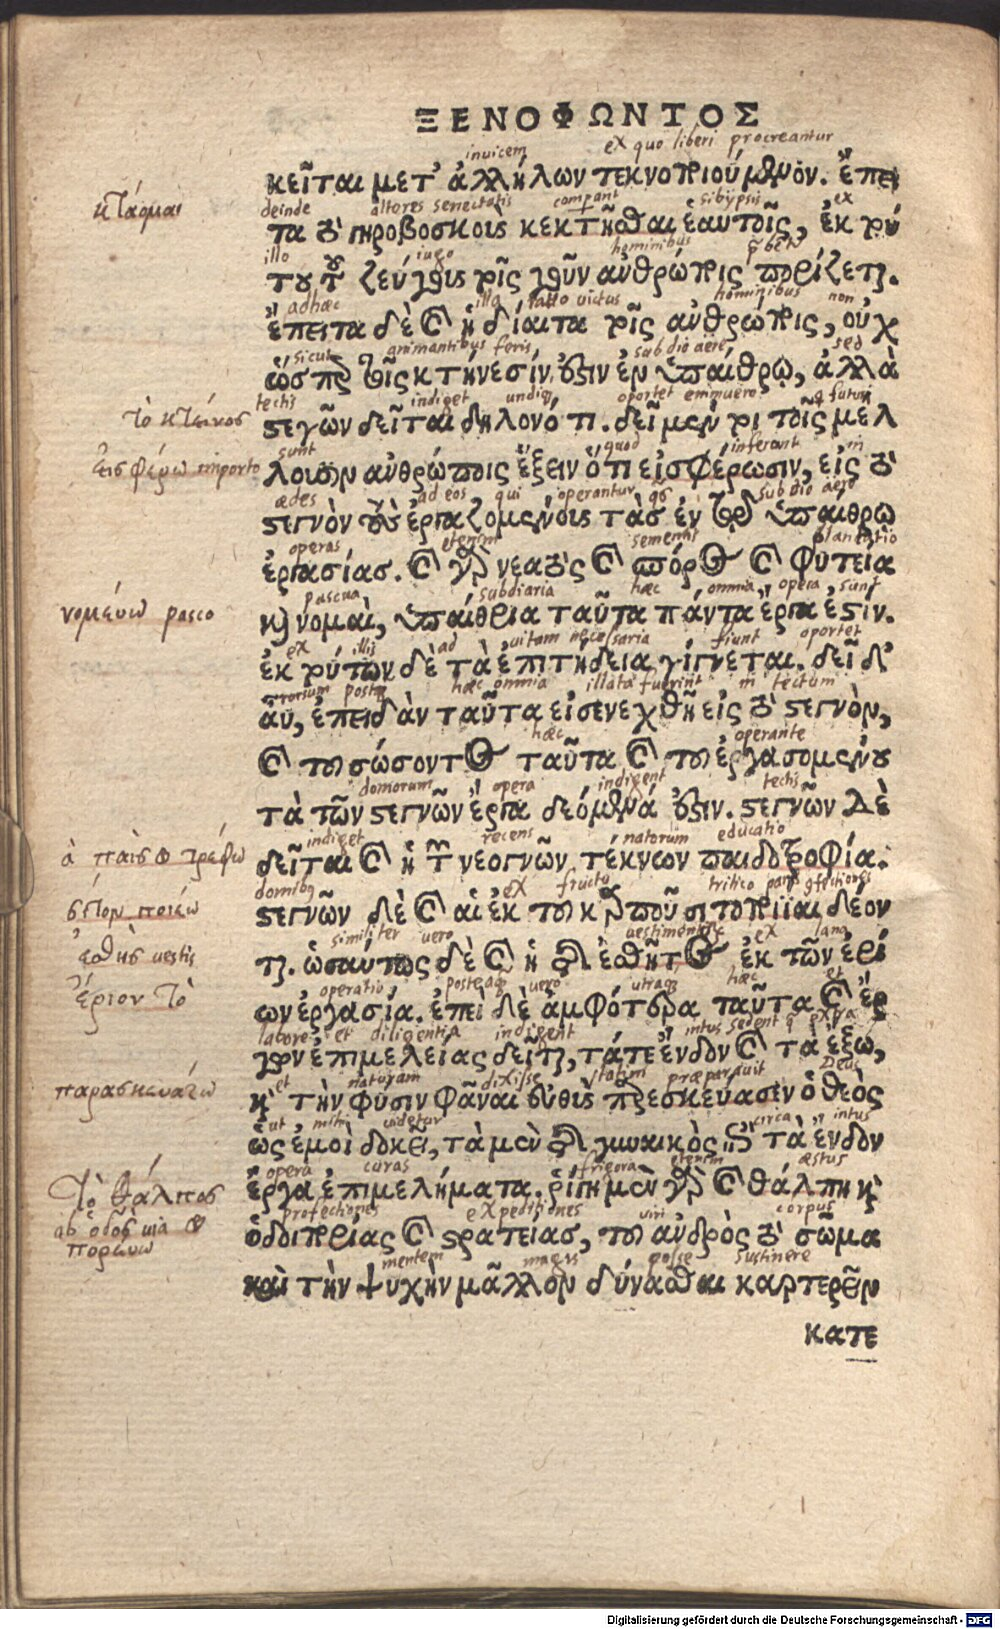 ΞΕΝΟΦΩΝΤΟΣ
invicem ex quo liberi procreantur
κεῖται μετ' ἀλλήλων τεκνοποιούμενον. ἔπει
κτάομαι
deinde altores senectatis comparet sibiipsis ex
τα τὸ γηροβοσκοὺς κεκτῆσθαι ἑαυτοῖς, ἐκ τού
illo iugo hominibus
του τοῦ ζεύγους τοῖς γοῦν ἀνθρώποις πορίζεται.
adhaec illa ratio victus hominibus non
ἔπειτα δὲ καὶ ἡ δίαιτα τοῖς ἀνθρώποις, οὐχ
sicut animantibus feris sub dio aere sed
ὥσπερ τοῖς κτήνεσίν ἐστιν ἐν ὑπαίθρῳ, ἀλλὰ
τὸ κτῆνος
tectis indiget undiq oportet enimuero q futuri
στεγῶν δεῖται δηλονότι. δεῖ μέντοι τοῖς μέλ
εἰσφέρω importo
sunt quod inferant in
λουσιν ἀνθρώποις ἕξειν ὅ τι εἰσφέρωσιν, εἰς τὸ
ædes ad eos qui operantur sub dio aere
στεγνὸν τοὺς ἐργαζομένους τὰς ἐν τῷ ὑπαίθρῳ
operas etenim sementis plantatio
ἐργασίας. καὶ γὰρ νεατὸς καὶ σπόρος καὶ φυτεία
νομεύω pasco
pascua subdiaria hæc omnia opera sunt
καὶ νομαὶ, ὑπαίθρια ταῦτα πάντα ἔργα ἐστίν.
ex illis ad vitam necessaria fiunt oportet
ἐκ τούτων δὲ τὰ ἐπιτήδεια γίγνεται. δεῖ δ'
rorsum postq hæc omnia illata fuerint in tectum
αὖ, ἐπειδὰν ταῦτα εἰσενεχθῇ εἰς τὸ στεγνὸν,
hæc operante
καὶ τοῦ σώσοντος ταῦτα καὶ τοῦ ἐργασομένου
domorum opera indigent tectis
τὰ τῶν στεγνῶν ἔργα δεόμενά ἐστιν. στεγνῶν δὲ
ὁ παῖς & τρέφω
indiget recens natorum educatio
δεῖται καὶ ἡ τῶν νεογνῶν τέκνων παιδοτροφία.
σῖτον ποιέω
domibq ex fructu tritico panis cfectiones
στεγνῶν δὲ καὶ αἱ ἐκ τοῦ καρποῦ σιτοποιΐαι δέον
ἐσθὴς vestis
similiter vero vestimentis ex lana
ται. ὡσαύτως δὲ καὶ ἡ τῆς ἐσθῆτος ἐκ τῶν ἐρί
ἔριον τὸ
operatio posteaq vero utraq hæc et
ων ἐργασία. ἐπεὶ δὲ ἀμφότερα ταῦτα καὶ ἔρ
labore et diligentia indigent intus sedent q extra
γων ἐπιμελείας δεῖται, τά τε ἔνδον καὶ τὰ ἔξω,
παρασκευάζω
et naturam dixisse statim præparavit Deus
καὶ τὴν φύσιν φάναι εὐθὺς παρεσκεύασεν ὁ θεὸς
ut mihi videtur circa intus
ὡς ἐμοὶ δοκεῖ, τὰ μὲν τῆς γυναικὸς ἐπὶ τὰ ἔνδον
Τὸ θάλπος
opera curas frigora etenim æstus
ἔργα ἐπιμελήματα. ῥίγη μὲν γὰρ καὶ θάλπη καὶ
ab ὁδὸς via & πορεύω
profectiones expeditiones viri corpus
ὁδοιπορίας καὶ στρατείας, τοῦ ἀνδρὸς τὸ σῶμα
mentem magis posse sustinere
καὶ τὴν ψυχὴν μᾶλλον δύνασθαι καρτερεῖν
κατε
Digitalisierung gefördert durch die Deutsche Forschungsgemeinschaft - DFG